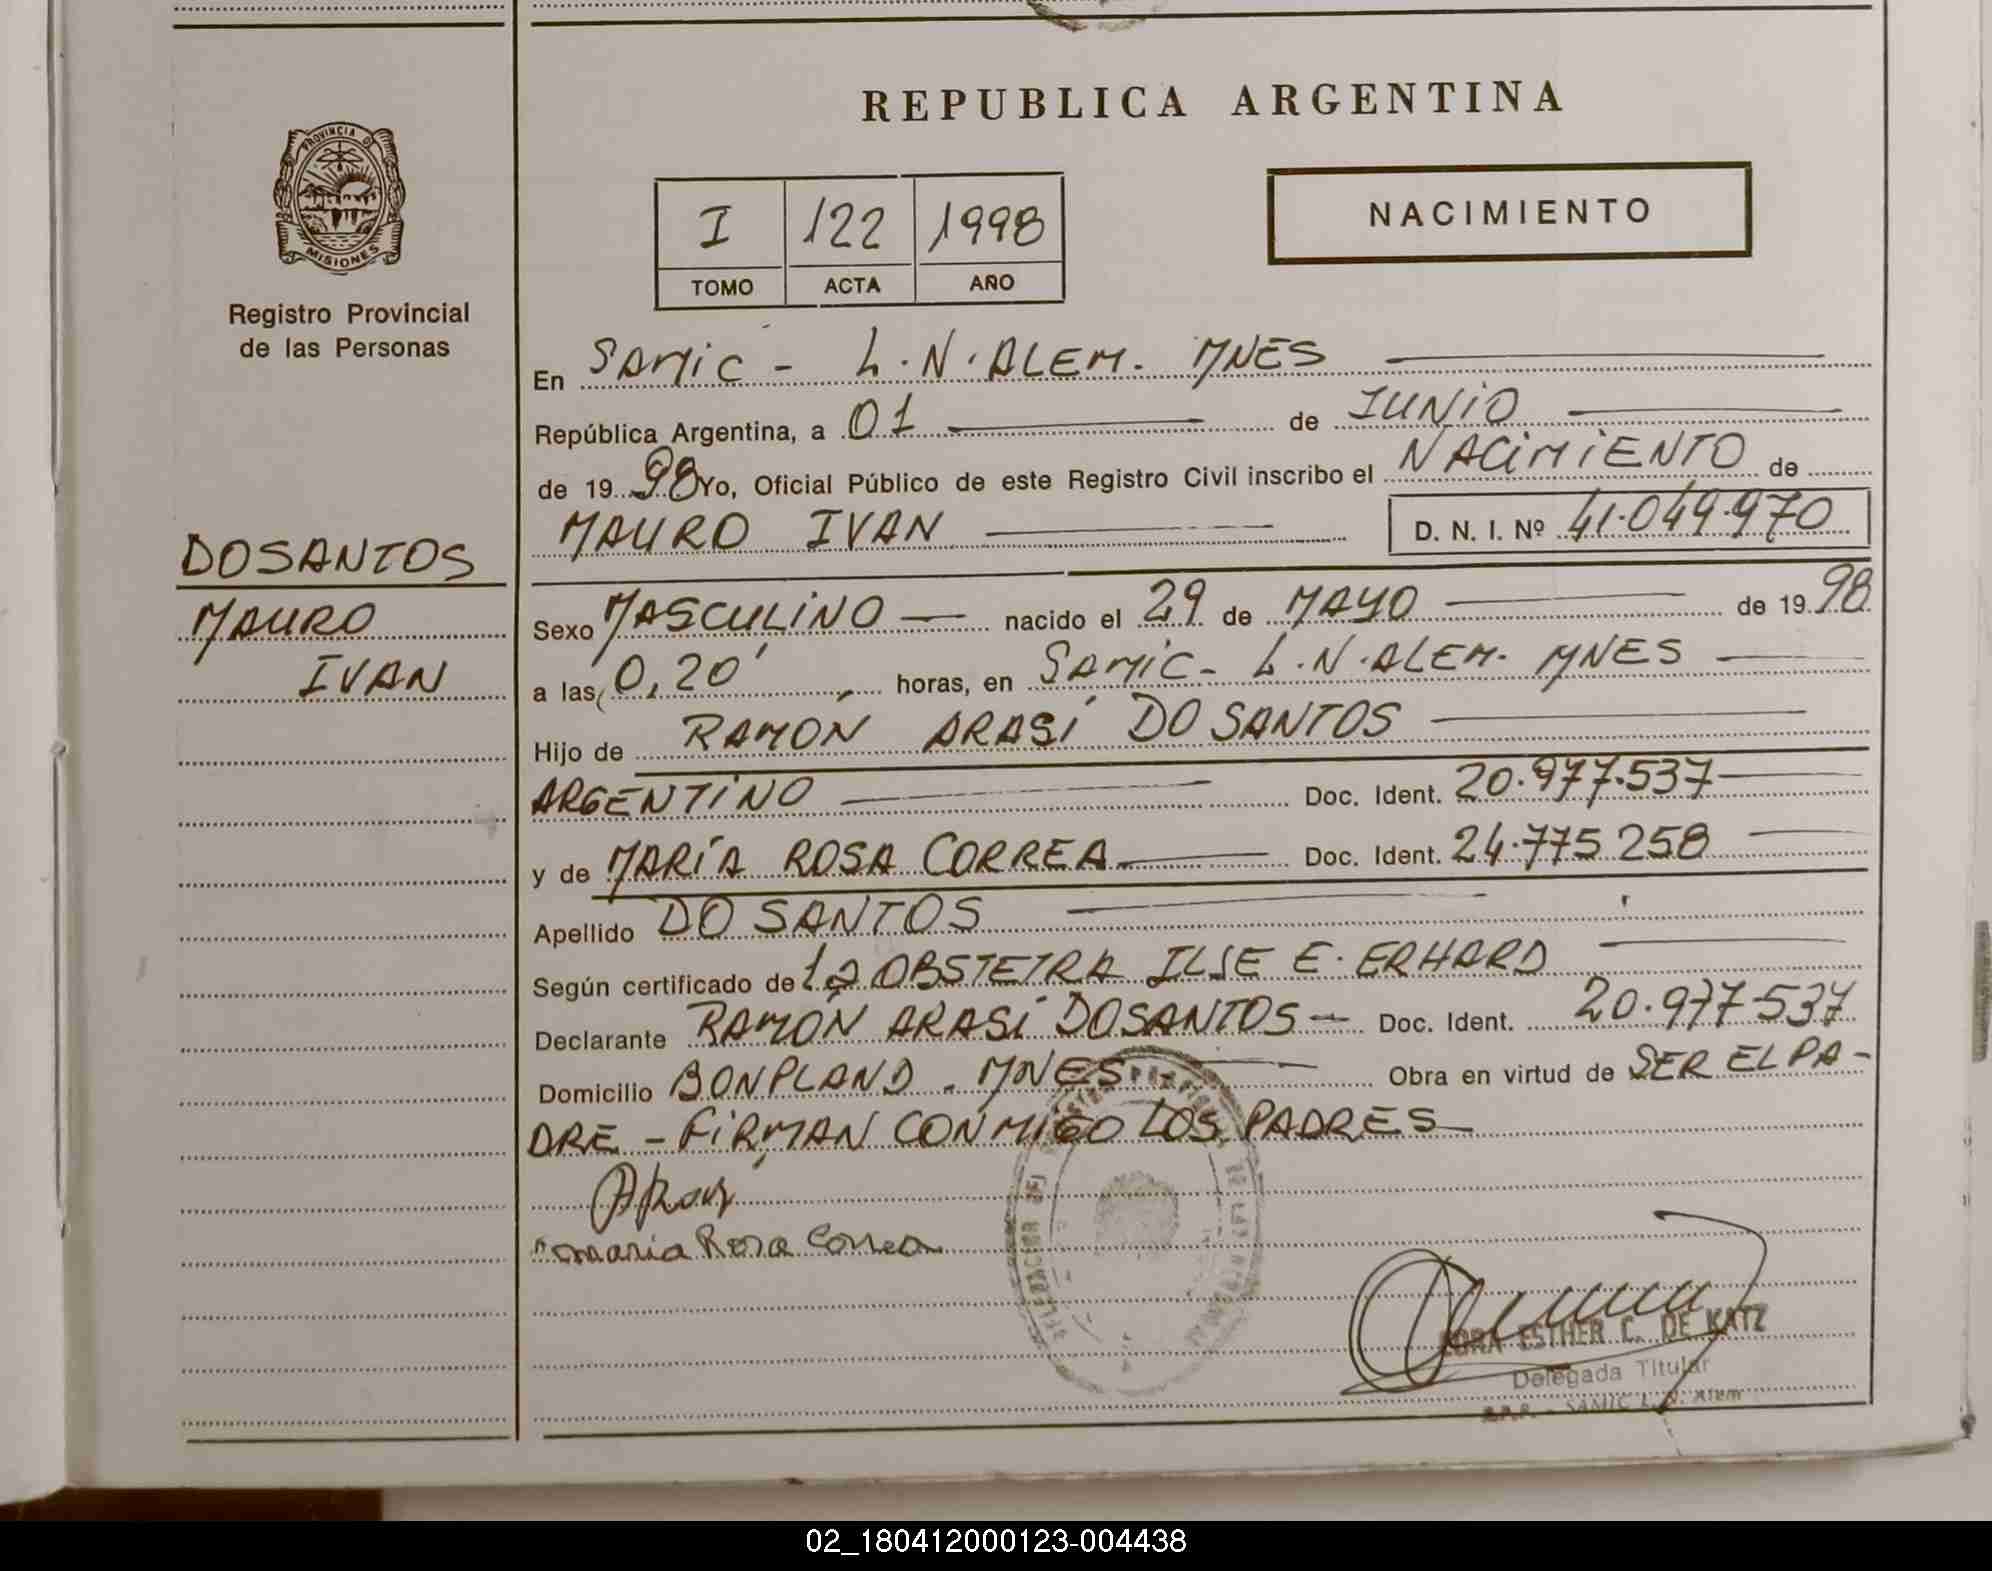 REPUBLICA ARGENTINA
PROVINCIA DE
MISIONES
Registro Provincial
de las Personas
I 122 1998
TOMO ACTA AÑO
NACIMIENTO
En SAMIC - L.N.ALEM. MNES
República Argentina, a 01 de JUNIO
de 1998 Yo, Oficial Público de este Registro Civil inscribo el NACIMIENTO de
MAURO IVAN D. N. I. Nº 41.049.970
DOSANTOS
MAURO
IVAN
Sexo MASCULINO nacido el 29 de MAYO de 1998
a las 0,20' horas, en SAMIC - L.N.ALEM. MNES
Hijo de RAMÓN ARASÍ DO SANTOS
ARGENTINO Doc. Ident. 20.977.537
y de MARÍA ROSA CORREA Doc. Ident. 24.775.258
Apellido DO SANTOS
Según certificado de la OBSTETRA ILSE E. ERHARD
Declarante RAMÓN ARASÍ DOSANTOS - Doc. Ident. 20.977.537
Domicilio BONPLAND. MNES Obra en virtud de SER EL PA-
DRE - FIRMAN CONMIGO LOS PADRES
maria Rosa Correa
ESTHER C. DE KATZ
Delegada Titular
SAMIC L. N. Alem
02_180412000123-004438